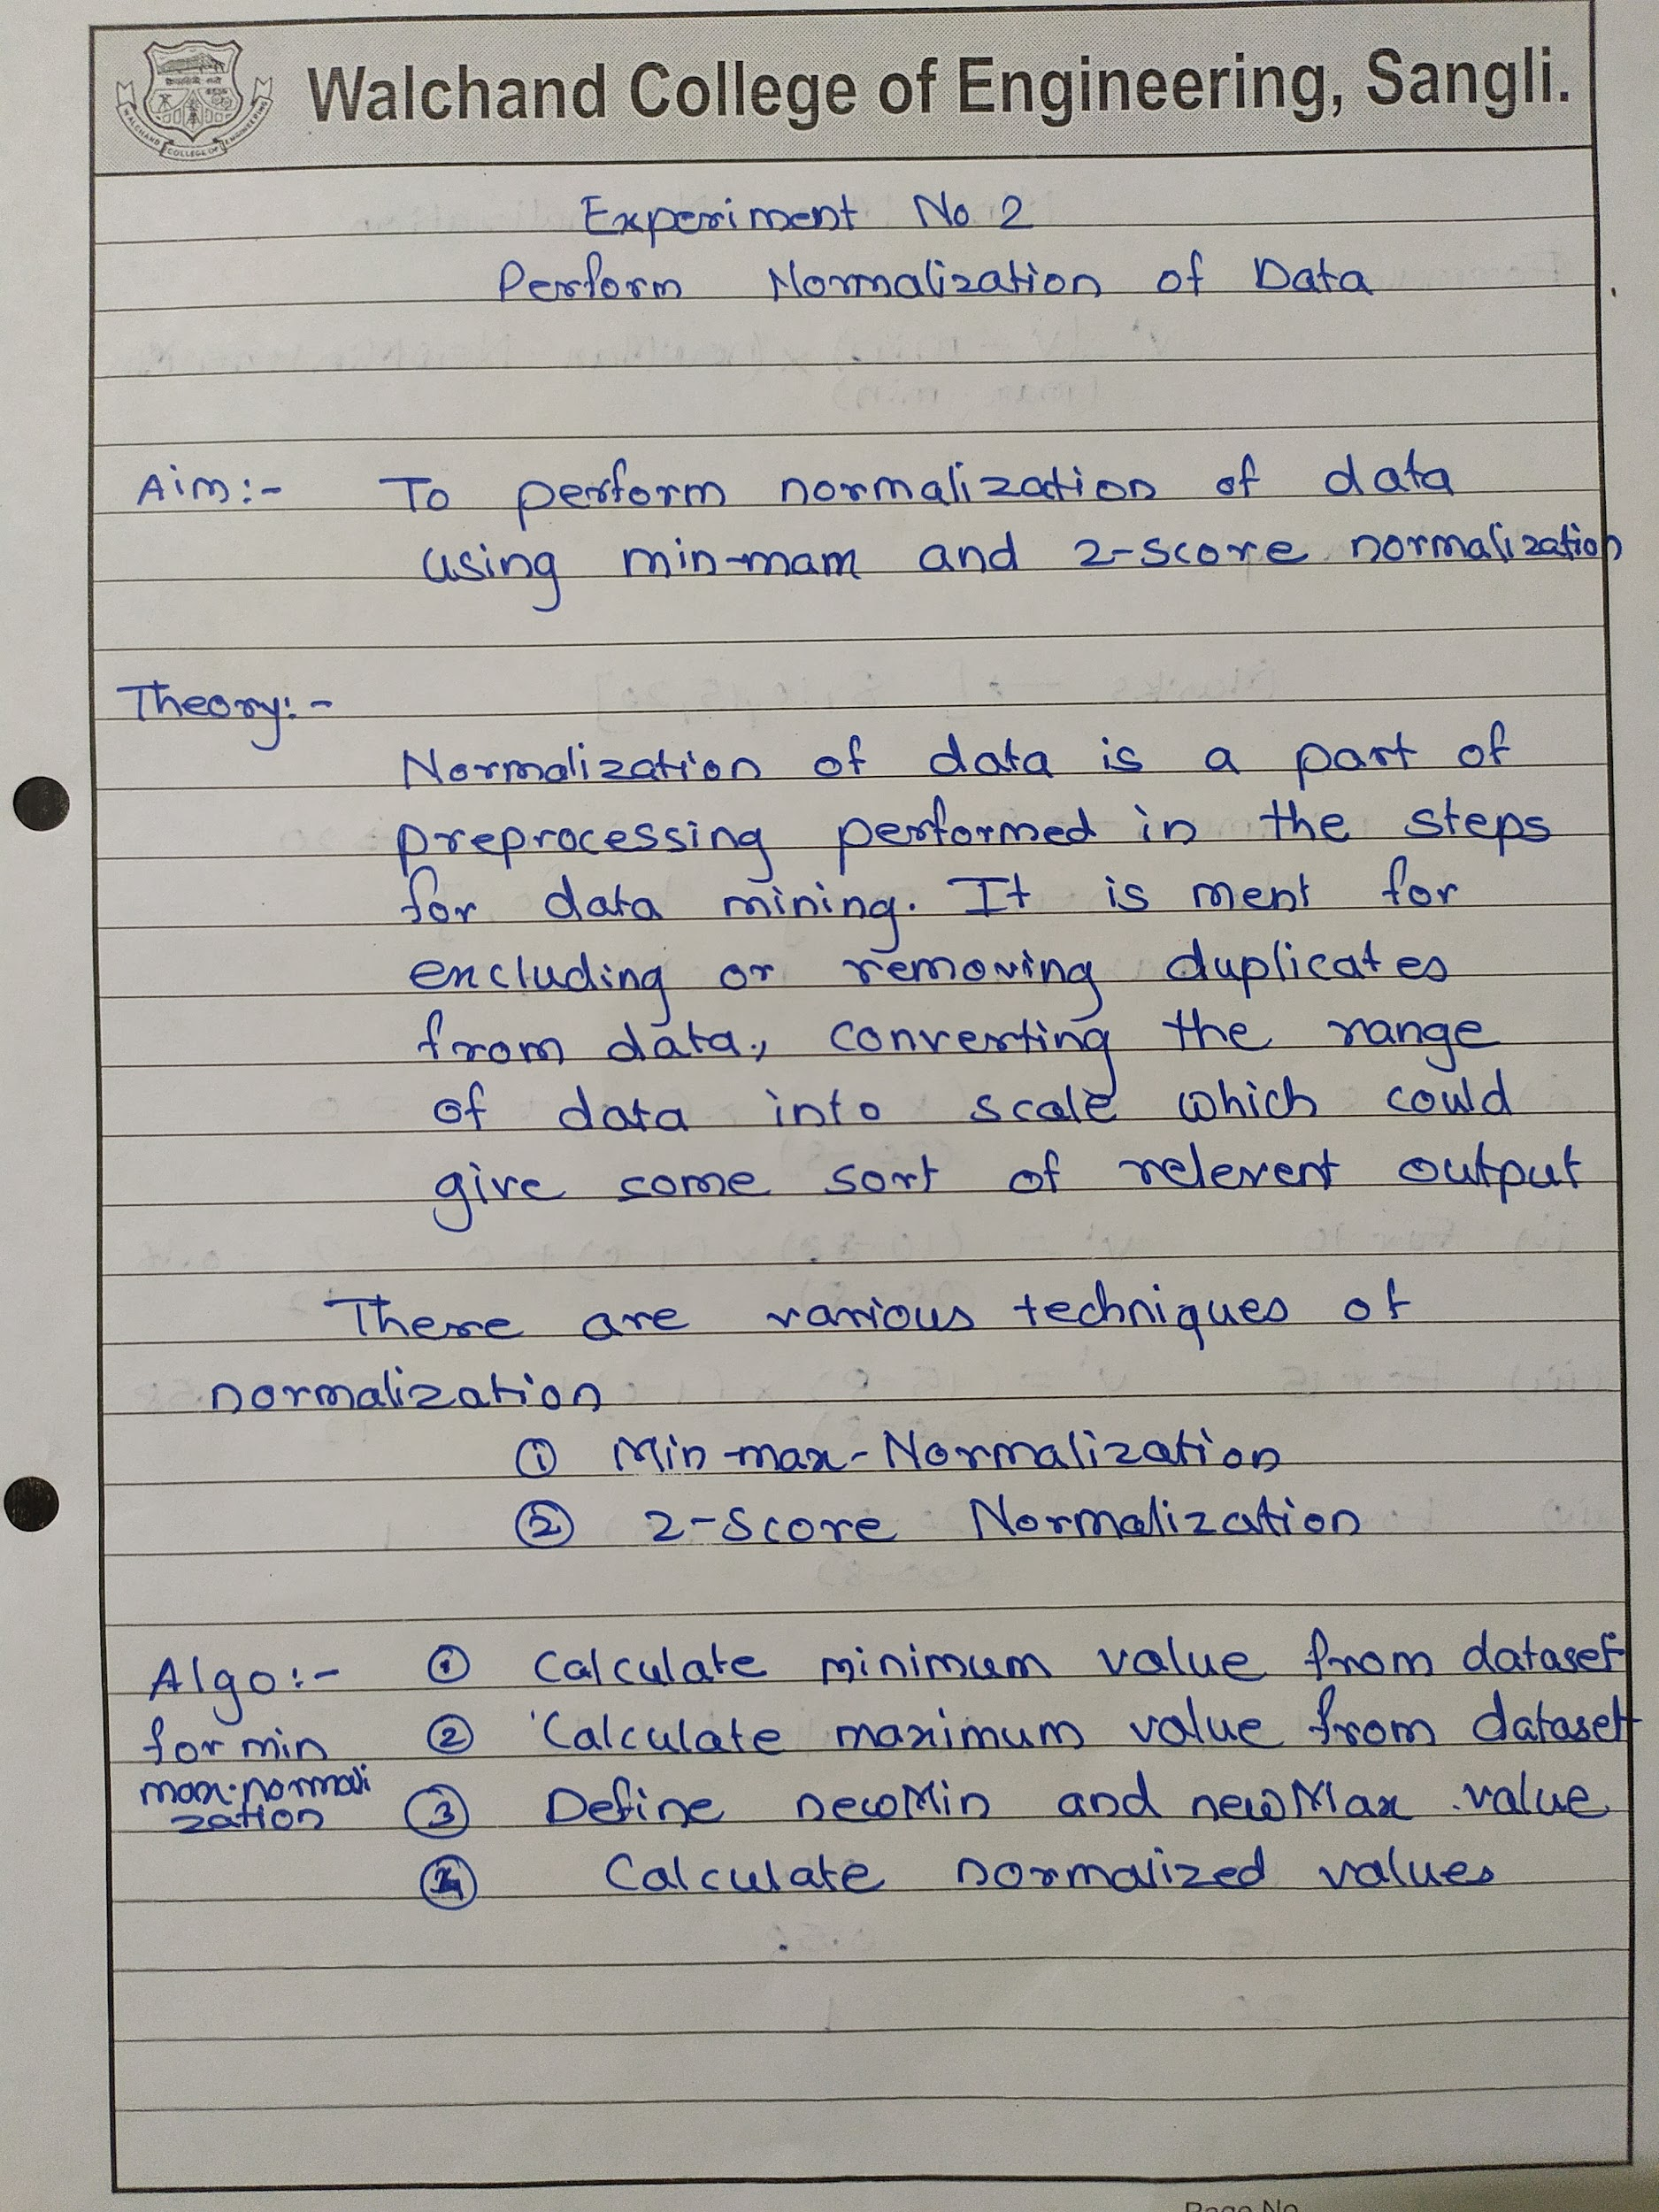 Walchand College of Engineering, Sangli.
WALCHAND COLLEGE OF ENGINEERING
Experiment No 2
Perform Normalization of Data
Aim:- To perform normalization of data
using min-mam and 2-score normalization
Theory:-
Normalization of data is a part of
preprocessing performed in the steps
for data mining. It is ment for
excluding or removing duplicates
from data., converting the range
of data into scale which could
give some sort of relevent output
There are various techniques of
normalization
① Min-max-Normalization
② 2-Score Normalization
Algo:- ① Calculate minimum value from dataset
for min ② Calculate maximum value from dataset
max-normali
zation ③ Define newMin and newMax value
④ Calculate normalized values
Page No